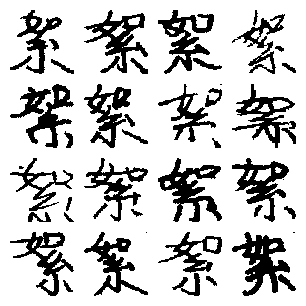 絮絮絮絮
絮絮絮絮
絮絮絮絮
絮絮絮絮